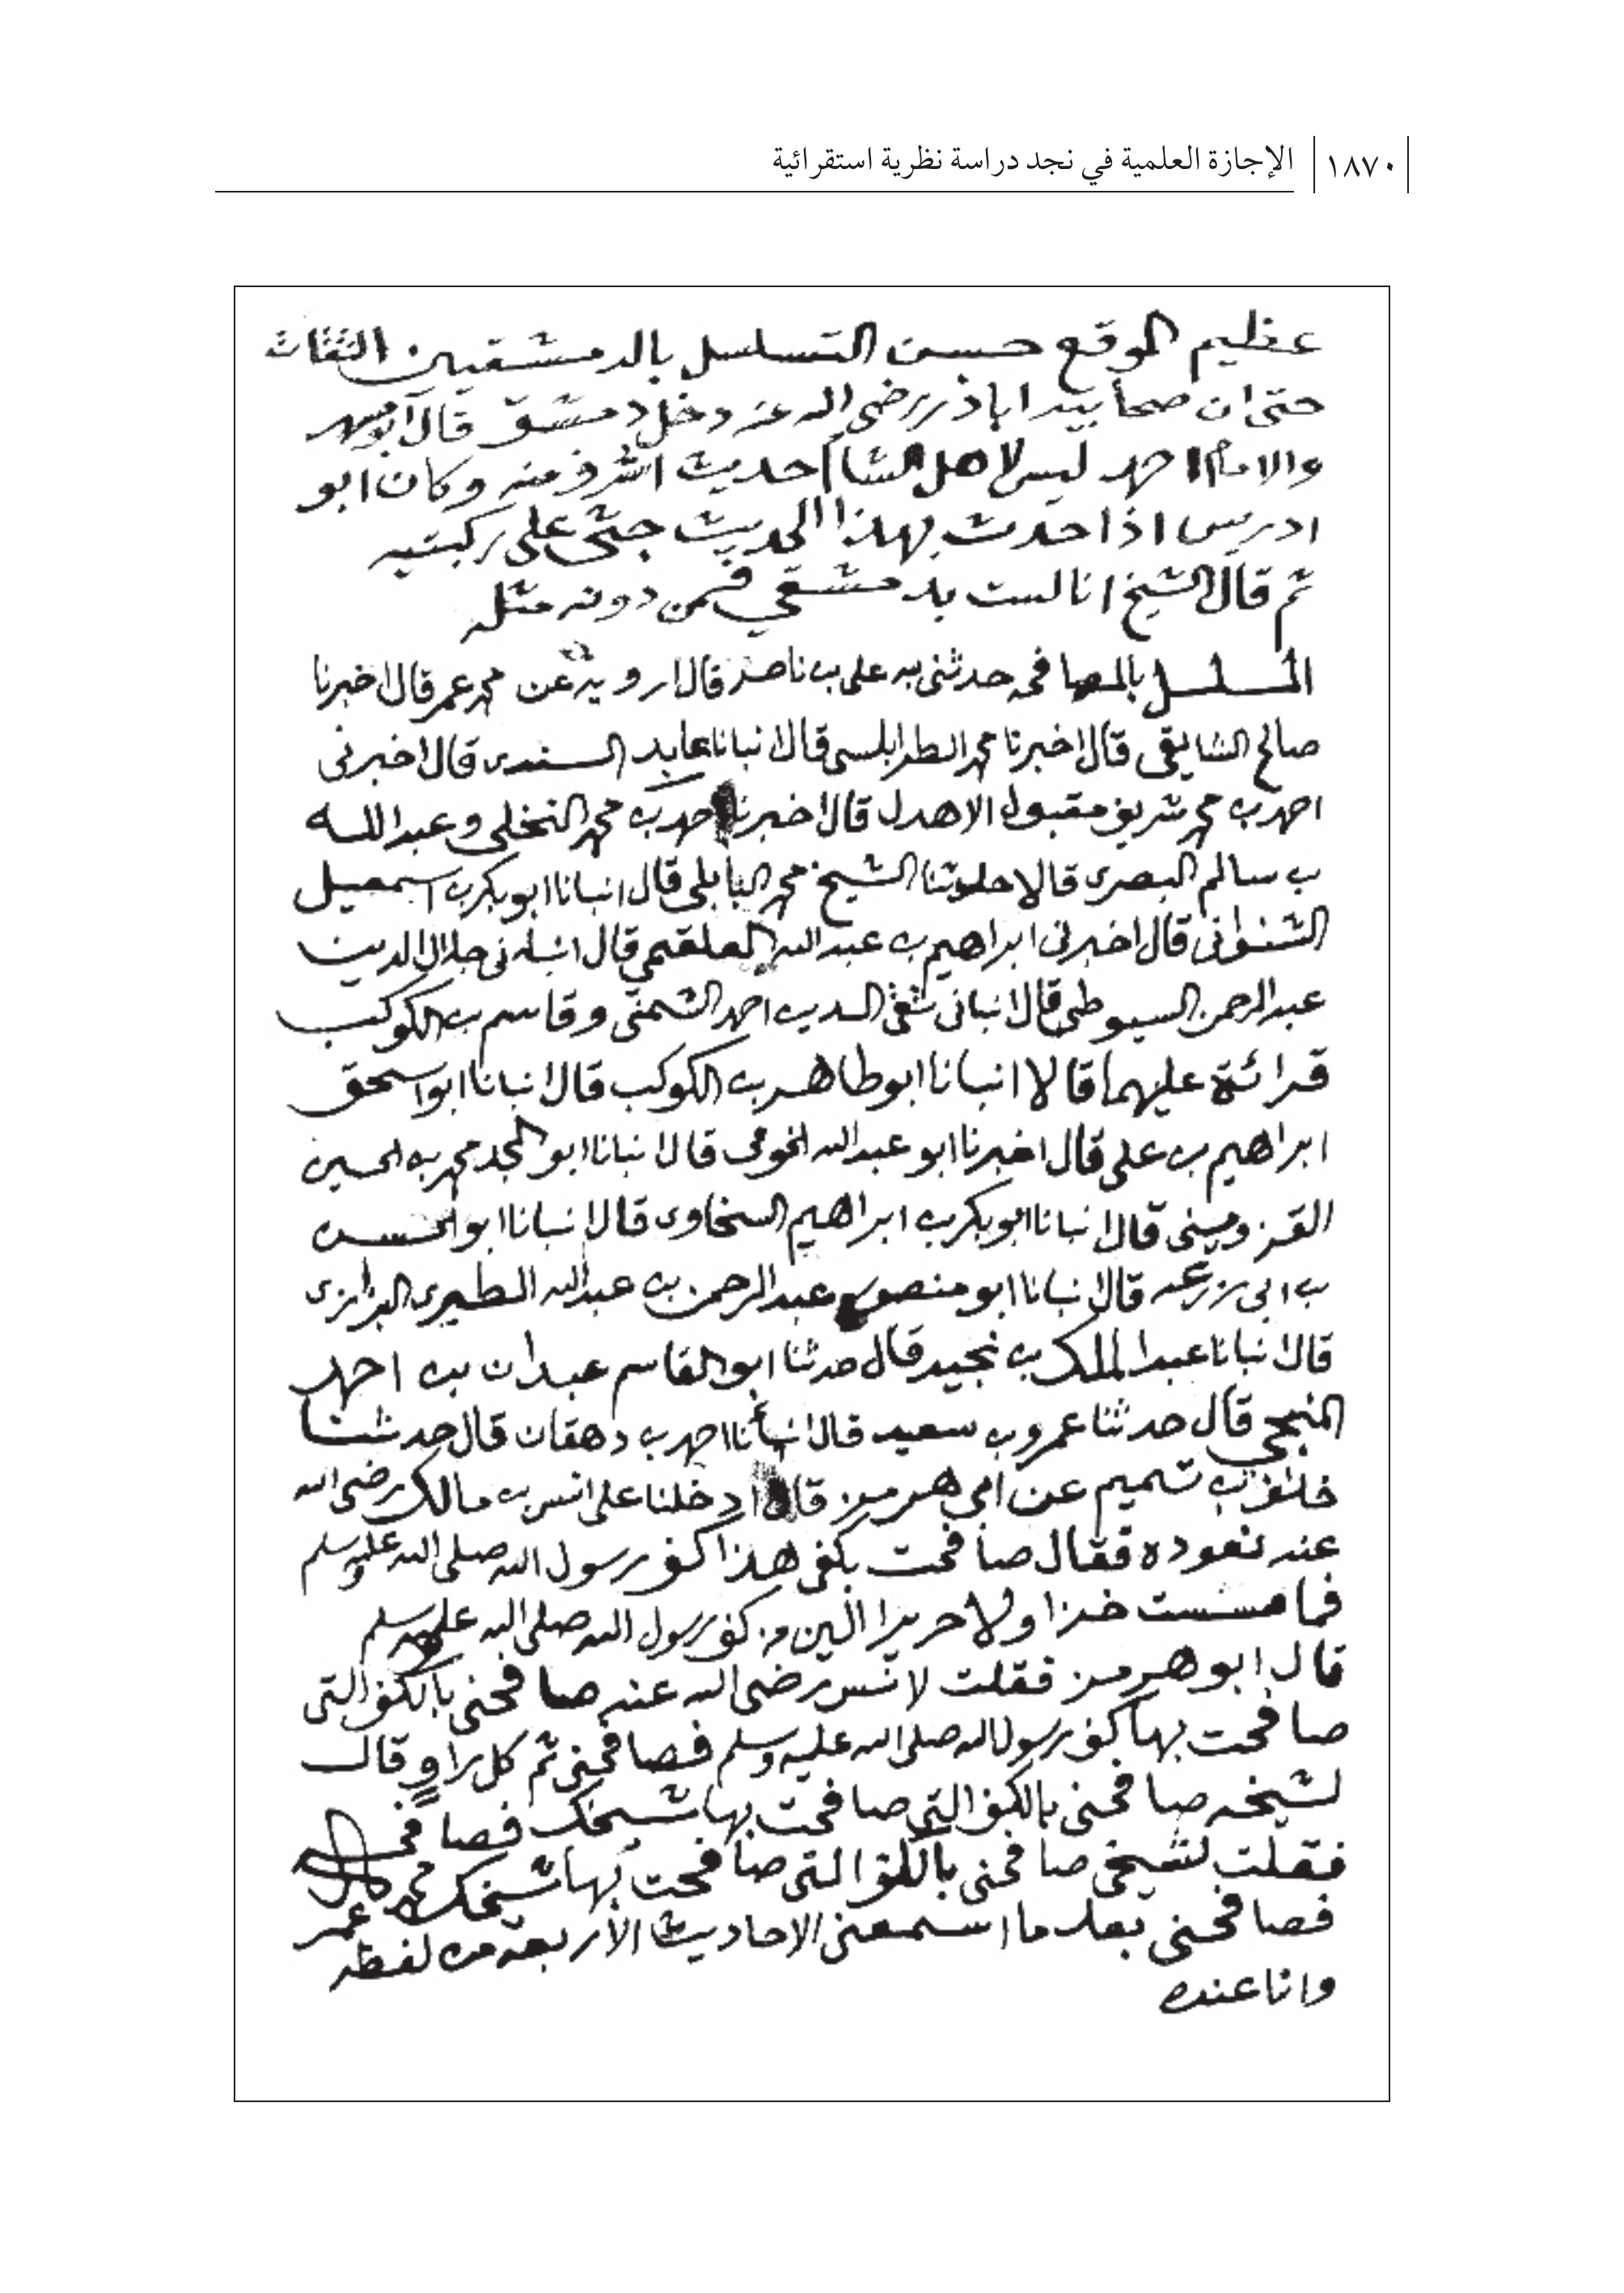 ١٨٧٠ الإجازة العلمية في نجد دراسة نظرية استقرائية
عظيم الموقع حسن التسلسل بالدمشقيين الثقات
حتى ان صحابيه اباذر رضي الله عنه دخل دمشق قال ابو مسهر
والامام احمد ليس لاهل الشام حديث اشرف منه وكان ابو
ادريس اذا حدث بهذا الحديث جثى على ركبتيه
ثم قال الشيخ انا لست بدمشقي فمن دونه مثله
المسلسل بالمصافحه حدثني به علي ب ناصر قال ارويه عن محمد عمر قال اخبرنا
صالح قال اخبرنا محمد الطرابلسي قال انبانا عابد السندي قال اخبرني
احمد ب محمد شريف مقبول الاهدل قال اخبرنا احمد ب محمد النخلي وعبد الله
ب سالم البصري قالا حدثنا الشيخ محمد البابلي قال انبانا ابو بكر ب اسمعيل
الشنواني قال اخبرني ابراهيم ب عبد الله العلقمي قال انباني جلال الدين
عبد الرحمن السيوطي قال انباني تقي الدين احمد الشمني وقاسم ب الكوكب
قرائة عليهما قالا انبانا ابو طاهر ب الكوكب قال انبانا ابو اسحق
ابراهيم ب علي قال اخبرنا ابو عبد الله الخوي قال انبانا ابو المجد محمد ب الحسين
القزويني قال انبانا ابو بكر ب ابراهيم السخاوي قال انبانا ابو الحسن
ب ابي زرعه قال انبانا ابو منصور عبد الرحمن ب عبد الله الطبري البزازي
قال انبانا عبد الملك ب نجيد قال حدثنا ابو القاسم عبدان ب احمد
المنبجي قال حدثنا عمرو ب سعيد قال انبأنا احمد ب دهقان قال حدثنا
خلف ب تميم عن ابي هرمز قال دخلنا على انس ب مالك رضي الله
عنه نعوده فقال صافحت بكفي هذا كف رسول الله صلى الله عليه وسلم
فما مسست خزا ولا حريرا الين من كف رسول الله صلى الله عليه وسلم
قال ابو هرمز فقلت لانس رضي الله عنه صافحني بالكف التي
صافحت بها كف رسول الله صلى الله عليه وسلم فصافحني ثم كل راو قال
لشيخه صافحني بالكف التي صافحت بها شيخك فصافحه
فقلت لشيخي صافحني بالكف التي صافحت بها شيخك محمد عمر
فصافحني بعد ما اسمعني الاحاديث الاربعة من لفظه
وانا عنده